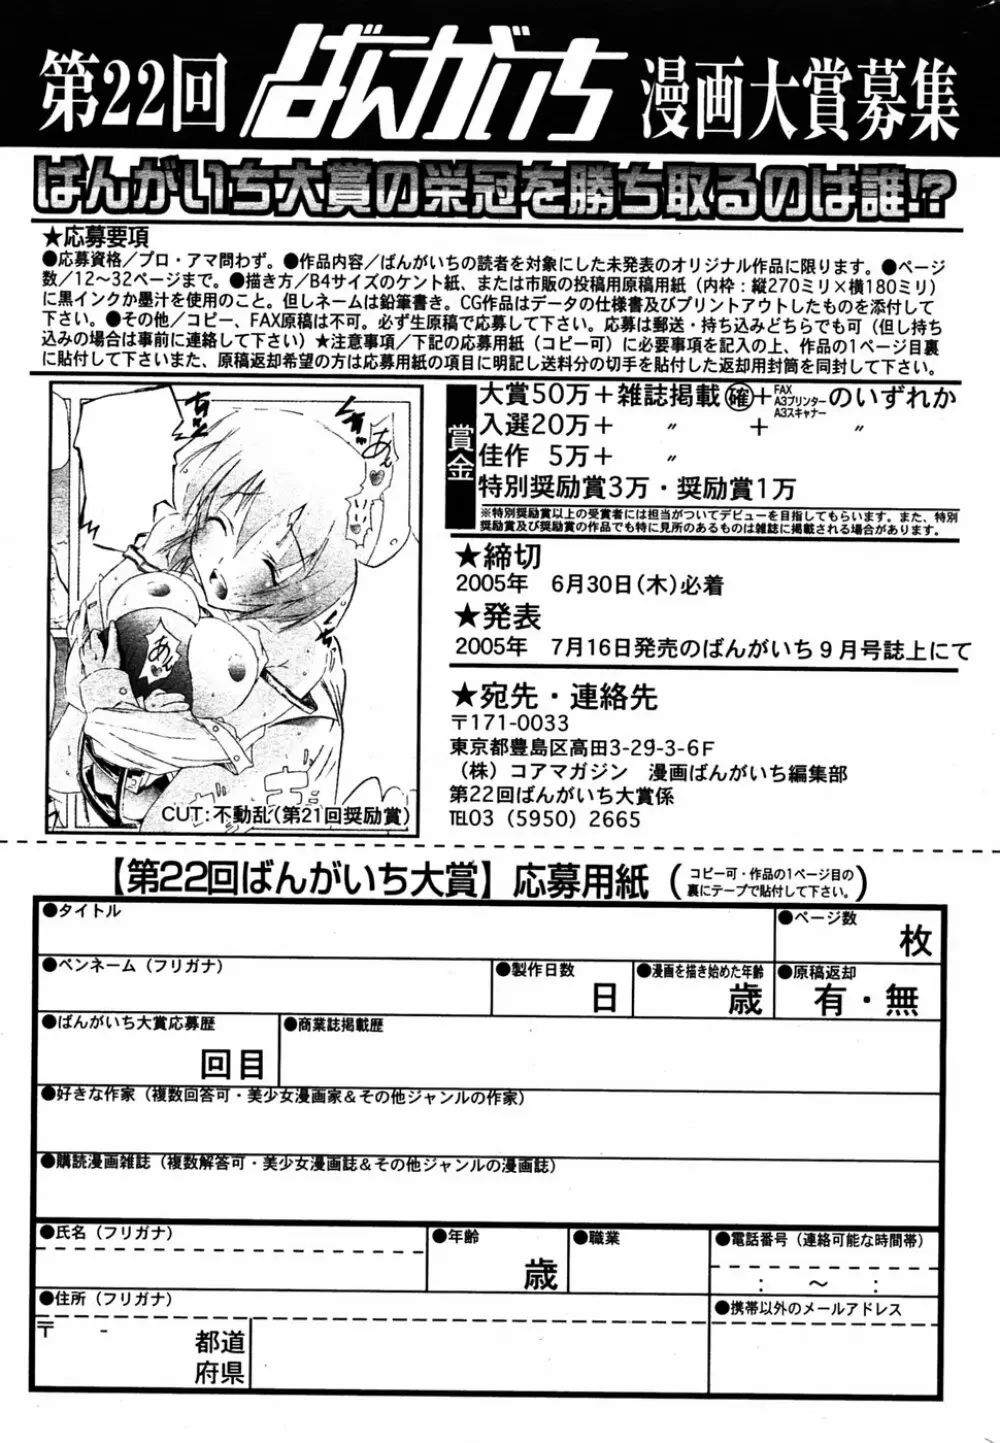 第22回 ばんがいち 漫画大賞募集
ばんがいち大賞の栄冠を勝ち取るのは誰!?
★応募要項
●応募資格／プロ・アマ問わず。●作品内容／ばんがいちの読者を対象にした未発表のオリジナル作品に限ります。●ページ
数／12～32ページまで。●描き方／B4サイズのケント紙、または市販の投稿用原稿用紙（内枠：縦270ミリ×横180ミリ）
に黒インクか墨汁を使用のこと。但しネームは鉛筆書き。CG作品はデータの仕様書及びプリントアウトしたものを添付して
下さい。●その他／コピー、FAX原稿は不可。必ず生原稿で応募して下さい。応募は郵送・持ち込みどちらでも可（但し持ち
込みの場合は事前に連絡して下さい）★注意事項／下記の応募用紙（コピー可）に必要事項を記入の上、作品の1ページ目裏
に貼付して下さいまた、原稿返却希望の方は応募用紙の項目に明記し送料分の切手を貼付した返却用封筒を同封して下さい。
賞金
大賞50万＋雑誌掲載㊙確＋FAX A3プリンター A3スキャナーのいずれか
入選20万＋ 〃 ＋ 〃
佳作 5万＋ 〃
特別奨励賞3万・奨励賞1万
※特別奨励賞以上の受賞者には担当がついてデビューを目指してもらいます。また、特別
奨励賞及び奨励賞の作品でも特に見所のあるものは雑誌に掲載される場合があります。
あん
あん
CUT：不動乱（第21回奨励賞）
★締切
2005年 6月30日（木）必着
★発表
2005年 7月16日発売のばんがいち9月号誌上にて
★宛先・連絡先
〒171-0033
東京都豊島区高田3-29-3-6F
（株）コアマガジン 漫画ばんがいち編集部
第22回ばんがいち大賞係
℡03（5950）2665
【第22回ばんがいち大賞】応募用紙（コピー可・作品の1ページ目の
裏にテープで貼付して下さい。）
●タイトル
●ページ数
枚
●ペンネーム（フリガナ）
●製作日数
日
●漫画を描き始めた年齢
歳
●原稿返却
有・無
●ばんがいち大賞応募歴
回目
●商業誌掲載歴
●好きな作家（複数回答可・美少女漫画家＆その他ジャンルの作家）
●購読漫画雑誌（複数解答可・美少女漫画誌＆その他ジャンルの漫画誌）
●氏名（フリガナ）
●年齢
歳
●職業
●電話番号（連絡可能な時間帯）
： ～ ：
●住所（フリガナ）
〒 -
都道
府県
●携帯以外のメールアドレス